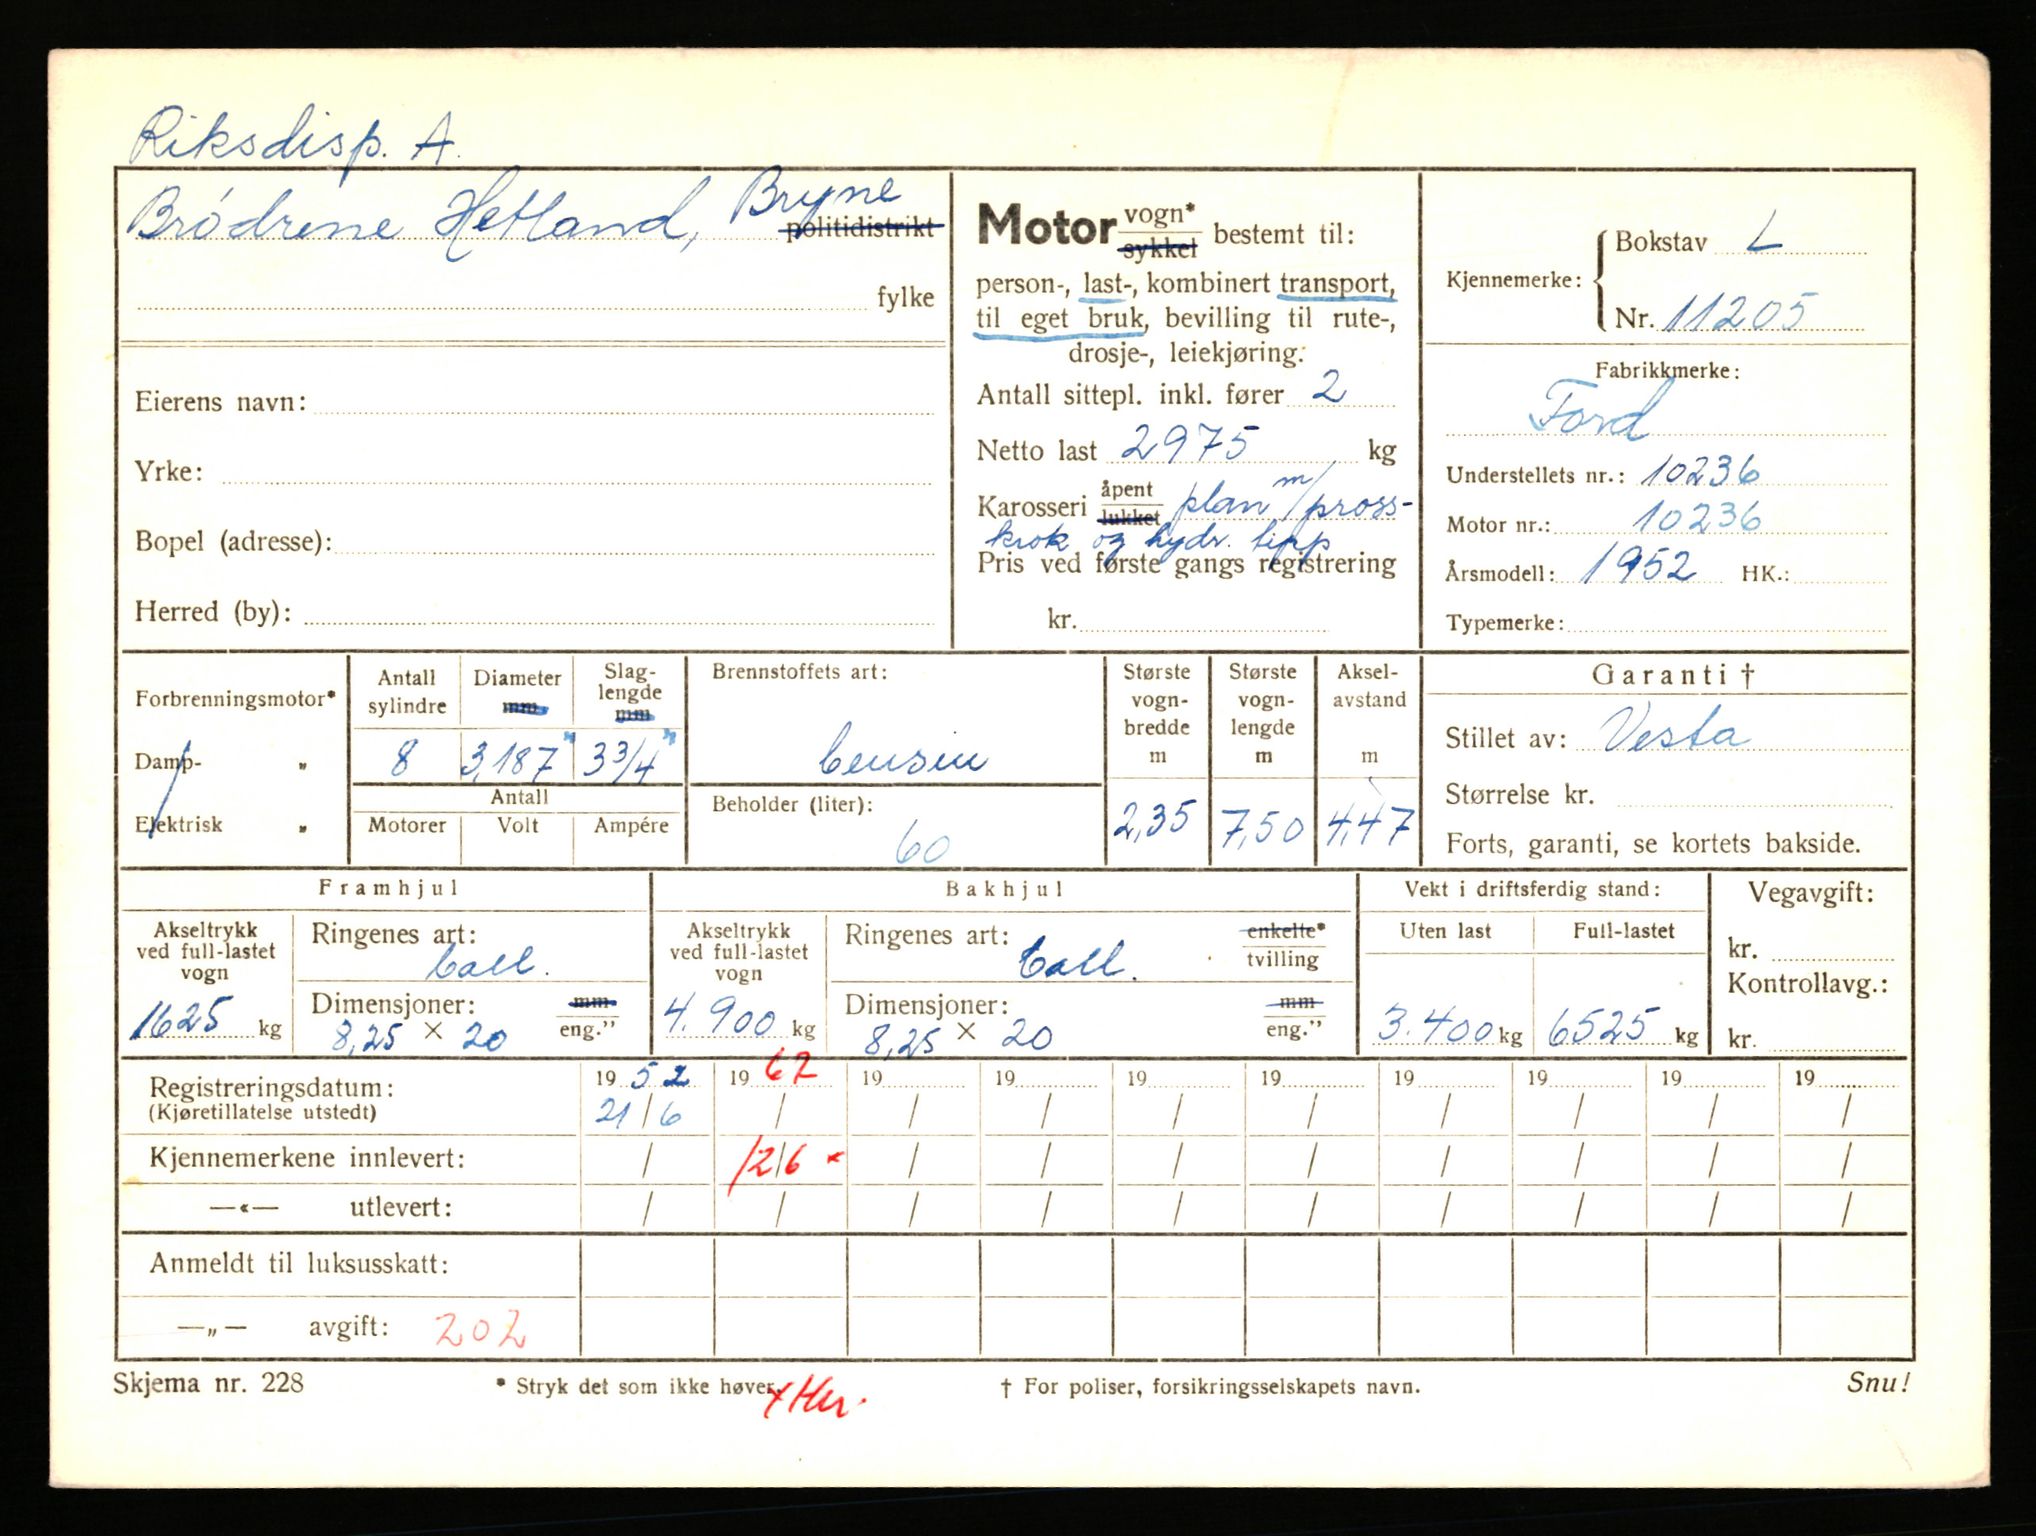 Riksdisp. A.
Brödrene Hetland, Bryne
politidistrikt
fylke
Eierens navn:
Yrke:
Bopel (adresse):
Herred (by):
Motor vogn* sykkel bestemt til:
person-, last-, kombinert transport,
til eget bruk, bevilling til rute-,
drosje-, leiekjøring:
Antall sittepl. inkl. fører 2
Netto last 2975 kg
Karosseri åpent lukket plan m/pross-
krok og hydr. tipp
Pris ved første gangs registrering
kr.
Kjennemerke: Bokstav L
Nr. 11205
Fabrikkmerke:
Ford
Understellets nr.: 10236
Motor nr.: 10236
Årsmodell: 1952 HK.:
Typemerke:
Forbrenningsmotor*
Damp- „
Elektrisk „
Antall sylindre
Diameter mm
Slag-lengde mm
8 3,187" 3 3/4"
Antall
Motorer Volt Ampére
Brennstoffets art:
bensin
Beholder (liter):
60
Største vogn-bredde m
2,35
Største vogn-lengde m
7,50
Aksel-avstand m
4,47
Garanti †
Stillet av: Vesta
Størrelse kr.
Forts, garanti, se kortets bakside.
Framhjul
Akseltrykk ved full-lastet vogn
1625 kg
Ringenes art:
ball.
Dimensjoner: mm
8,25 × 20 eng."
Bakhjul
Akseltrykk ved full-lastet vogn
4.900 kg
Ringenes art: enkelte* tvilling
ball.
Dimensjoner: mm
8,25 × 20 eng."
Vekt i driftsferdig stand:
Uten last Full-lastet
3.400 kg 6525 kg
Vegavgift:
kr.
Kontrollavg.:
kr.
Registreringsdatum: 19 52 19 62 19 19 19 19 19 19 19 19
(Kjøretillatelse utstedt) 21/6 / / / / / / / / /
Kjennemerkene innlevert: / 12/6 * / / / / / / / /
—«— utlevert: / / / / / / / / / /
Anmeldt til luksusskatt:
—„— avgift: 202
Skjema nr. 228 * Stryk det som ikke høver. † For poliser, forsikringsselskapets navn. Snu!